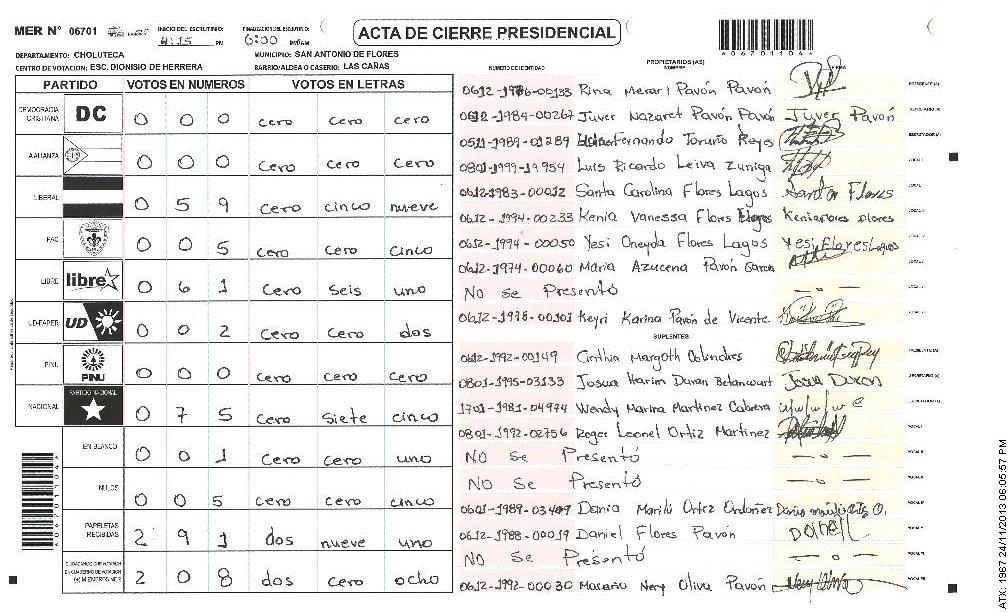 MER N° 06701
INICIO DEL ESCRUTINIO:
4:15 PM
FINALIZACION DEL ESCRUTINIO:
6:00
ACTA DE CIERRE PRESIDENCIAL
DEPARTAMENTO: CHOLUTECA
MUNICIPIO: SAN ANTONIO DE FLORES
CENTRO DE VOTACION: ESC. DIONISIO DE HERRERA
BARRIO/ALDEA O CASERIO: LAS CAÑAS
PARTIDO VOTOS EN NUMEROS VOTOS EN LETRAS
DEMOCRACIA CRISTIANA DC 0 0 0 cero cero cero
AALIANZA 0 0 0 cero cero cero
LIBERAL 0 5 9 cero cinco nueve
PAC 0 0 5 cero cero cinco
LIBRE libre 0 6 1 cero seis uno
UD-FAPER UD 0 0 2 cero cero dos
PINU PINU 0 0 0 cero cero cero
NACIONAL PARTIDO NACIONAL 0 7 5 cero siete cinco
EN BLANCO 0 0 1 cero cero uno
NULOS 0 0 5 cero cero cinco
PAPELETAS RECIBIDAS 2 9 1 dos nueve uno
CIUDADANOS QUE VOTARON EN CUADERNO DE VOTACION (+) MIEMBROS MER 2 0 8 dos cero ocho
NUMERO DE IDENTIDAD PROPIETARIOS (AS) NOMBRE FIRMA
0612-1976-00133 Rina Merari Pavón Pavón PRESIDENTE (A)
0612-1984-00267 Juver Nazaret Pavón Pavón Juver Pavón SECRETARIO (A)
0511-1989-01289 Fernando Toruño Reyes ESCRUTADOR (A)
0801-1999-19954 Luis Ricardo Leiva Zuniga VOCAL I
0612-1983-00012 Santa Carolina Flores Lagos Santa Flores
0612-1994-00233 Kenia Vanessa Flores Kenia flores flores
0612-1994-00050 Yesi Oneyda Flores Lagos Yesi Flores Lagos
0612-1974-00060 Maria Azucena Pavón Garcia
No Se Presentó — o —
0612-1978-00101 Keyri Karina Pavón de Vicente
SUPLENTES
0612-1992-00149 Cinthia Margoth Colindres PRESIDENTE (A)
0801-1995-03133 Josua Harim Duran Betancourt Josua Duron SECRETARIO (A)
1701-1981-04974 Wendy Marina Martinez Cabrera ESCRUTADOR (A)
0801-1992-02756 Roger Leonel Ortiz Martinez VOCAL I
No Se Presentó — o —
No Se Presentó — o —
0601-1989-03409 Dania Marilú Ortiz Ordoñez
0612-1988-00019 Daniel Flores Pavón
No Se Presentó — o —
0612-1992-00030 Nery Oliva Pavón
*06701104*
ATX: 1967 24/11/2013 06:05:57 PM